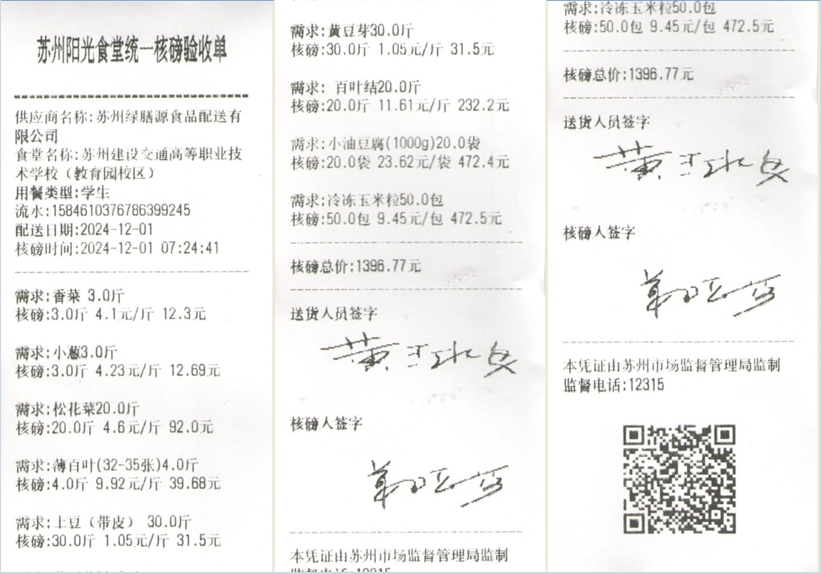 苏州阳光食堂统一核磅验收单
供应商名称:苏州绿膳源食品配送有
限公司
食堂名称:苏州建设交通高等职业技
术学校（教育园校区）
用餐类型:学生
流水:1584610376786399245
配送日期:2024-12-01
核磅时间:2024-12-01 07:24:41
需求:香菜 3.0斤
核磅:3.0斤 4.1元/斤 12.3元
需求:小葱3.0斤
核磅:3.0斤 4.23元/斤 12.69元
需求:松花菜20.0斤
核磅:20.0斤 4.6元/斤 92.0元
需求:薄百叶(32-35张)4.0斤
核磅:4.0斤 9.92元/斤 39.68元
需求:土豆（带皮） 30.0斤
核磅:30.0斤 1.05元/斤 31.5元
需求:黄豆芽30.0斤
核磅:30.0斤 1.05元/斤 31.5元
需求: 百叶结20.0斤
核磅:20.0斤 11.61元/斤 232.2元
需求:小油豆腐(1000g)20.0袋
核磅:20.0袋 23.62元/袋 472.4元
需求:冷冻玉米粒50.0包
核磅:50.0包 9.45元/包 472.5元
核磅总价:1396.77元
送货人员签字
核磅人签字
本凭证由苏州市场监督管理局监制
监督电话:12315
需求:冷冻玉米粒50.0包
核磅:50.0包 9.45元/包 472.5元
核磅总价:1396.77元
送货人员签字
核磅人签字
本凭证由苏州市场监督管理局监制
监督电话:12315